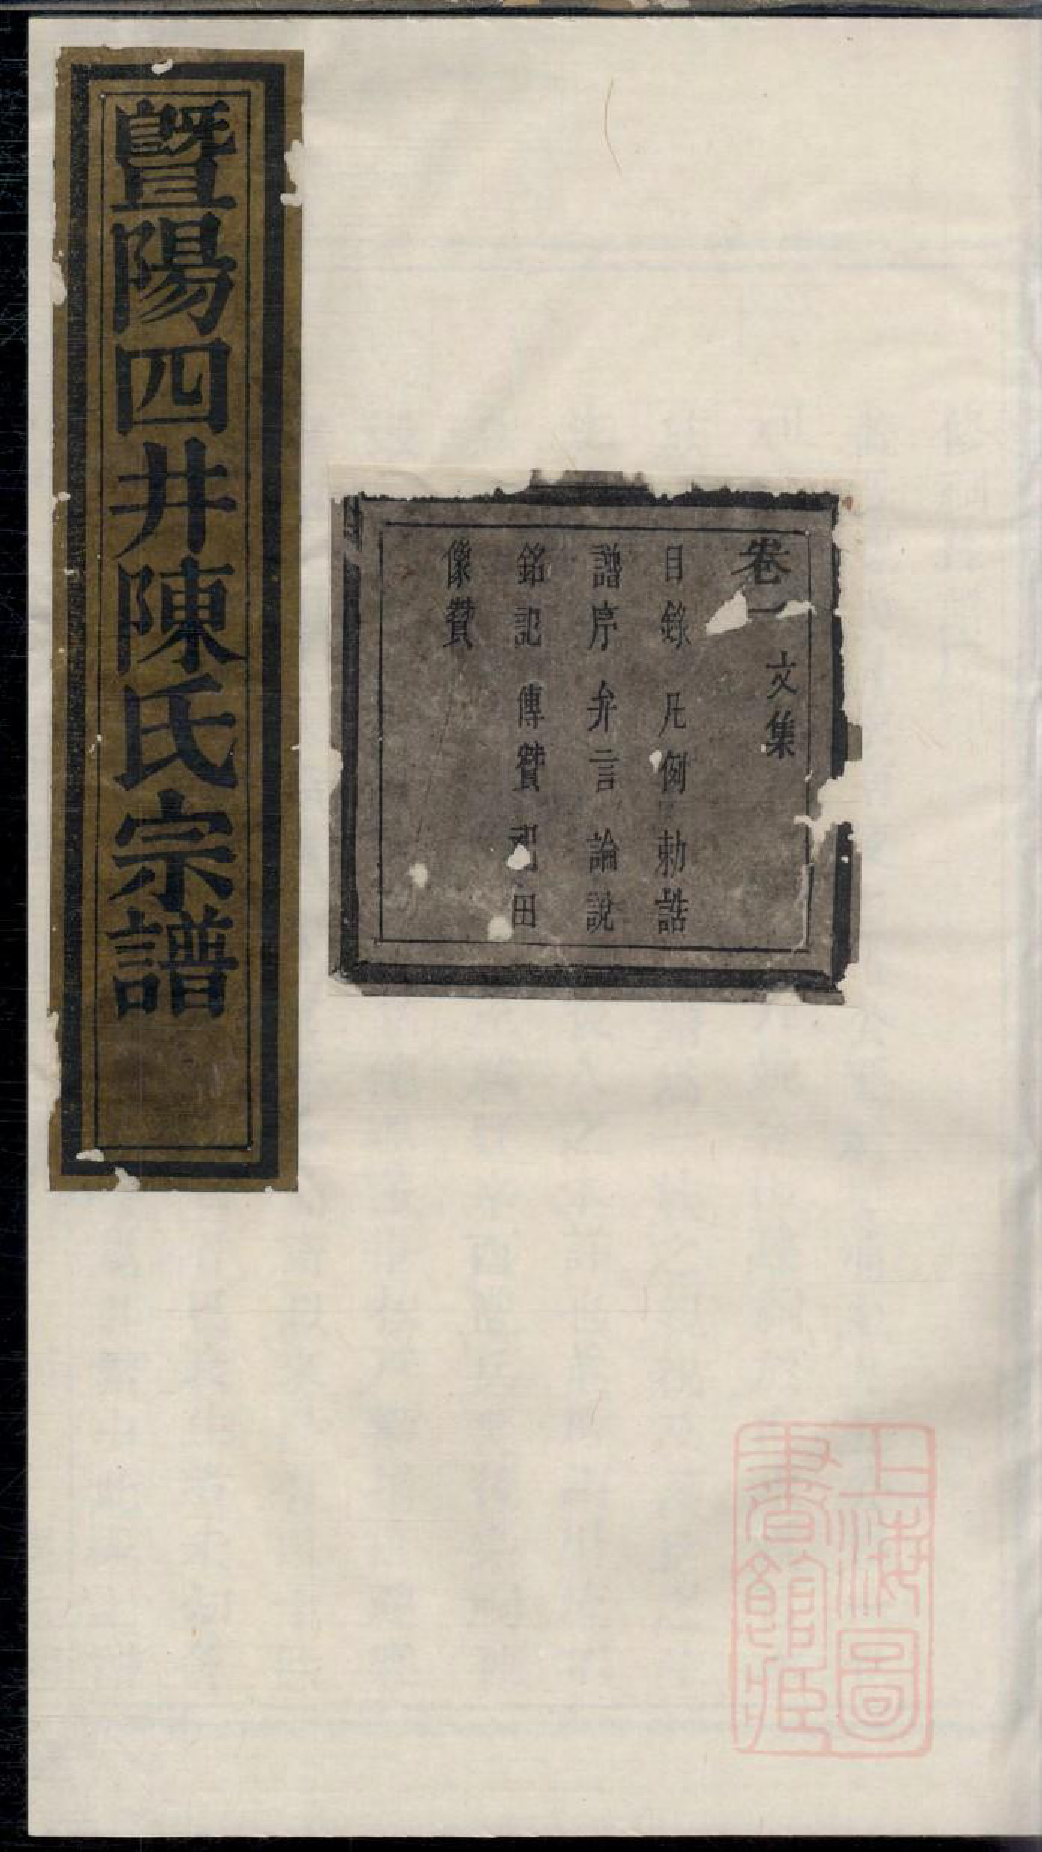 暨陽四井陳氏宗譜
卷一 文集
目錄 凡例 勅誥
譜序 弁言 論說
銘記 傳贊 祀田
像贊
上海圖
書館藏